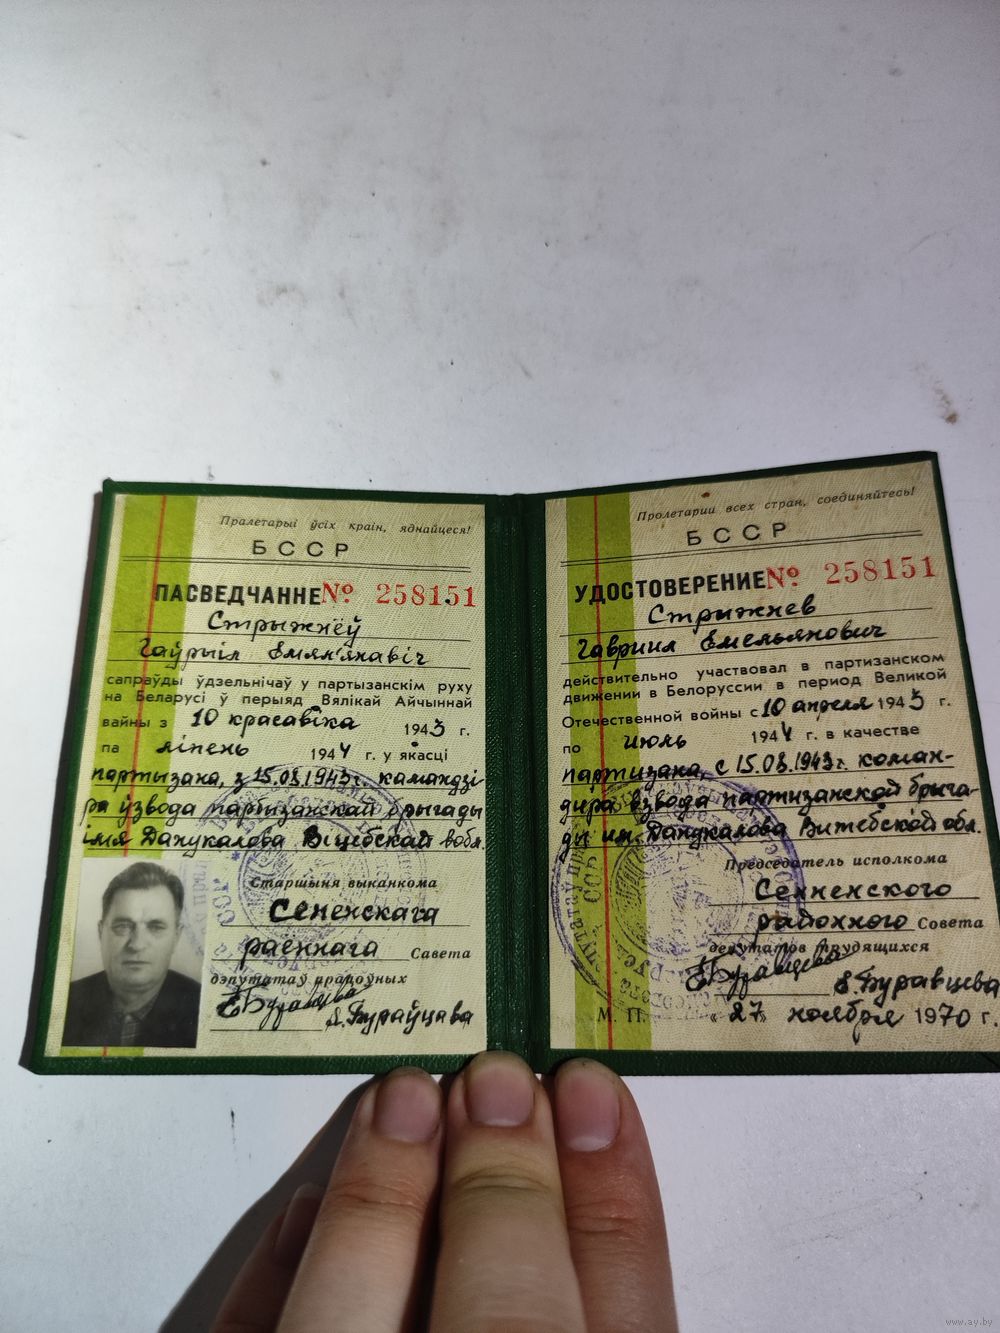 Пралетарыі ўсіх краін, яднайцеся!
БССР
ПАСВЕДЧАННЕ № 258151
Стрыжнёў
Гаўрыіл Емяльянавіч
сапраўды ўдзельнічаў у партызанскім руху
на Беларусі ў перыяд Вялікай Айчыннай
вайны з 10 красавіка 1943 г.
па ліпень 1944 г. у якасці
партызана, з 15.08.1943г. камандзі-
ра ўзвода партызанскай брыгады
імя Данукалова Віцебскай вобл.
Старшыня выканкома
Сененскага
раённага Савета
дэпутатаў працоўных
Е.Бураўцава
Пролетарии всех стран, соединяйтесь!
БССР
УДОСТОВЕРЕНИЕ № 258151
Стрыжнев
Гавриил Емельянович
действительно участвовал в партизанском
движении в Белоруссии в период Великой
Отечественной войны с 10 апреля 1943 г.
по июль 1944 г. в качестве
партизана, с 15.08.1943г. коман-
дира взвода партизанской брига-
ды им. Данукалова Витебской обл.
Председатель исполкома
Сенненского
районного Совета
депутатов трудящихся
Е.Буравцева
М. П. «27» ноября 1970 г.
www.ay.by